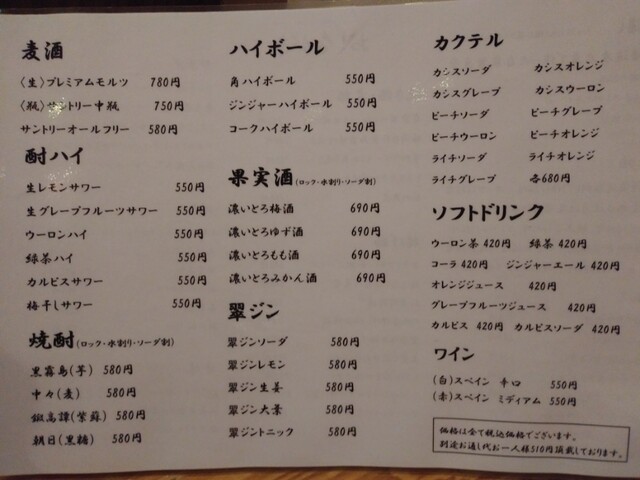 麦酒
〈生〉プレミアムモルツ 780円
〈瓶〉サントリー中瓶 750円
サントリーオールフリー 580円
酎ハイ
生レモンサワー 550円
生グレープフルーツサワー 550円
ウーロンハイ 550円
緑茶ハイ 550円
カルピスサワー 550円
梅干しサワー 550円
焼酎(ロック・水割り・ソーダ割)
黒霧島(芋) 580円
中々(麦) 580円
鍛高譚(紫蘇) 580円
朝日(黒糖) 580円
ハイボール
角ハイボール 550円
ジンジャーハイボール 550円
コークハイボール 550円
果実酒(ロック・水割り・ソーダ割)
濃いどろ梅酒 690円
濃いどろゆず酒 690円
濃いどろもも酒 690円
濃いどろみかん酒 690円
翠ジン
翠ジンソーダ 580円
翠ジンレモン 580円
翠ジン生姜 580円
翠ジン大葉 580円
翠ジントニック 580円
カクテル
カシスソーダ カシスオレンジ
カシスグレープ カシスウーロン
ピーチソーダ ピーチグレープ
ピーチウーロン ピーチオレンジ
ライチソーダ ライチオレンジ
ライチグレープ 各680円
ソフトドリンク
ウーロン茶 420円 緑茶 420円
コーラ 420円 ジンジャーエール 420円
オレンジジュース 420円
グレープフルーツジュース 420円
カルピス 420円 カルピスソーダ 420円
ワイン
(白)スペイン 辛口 550円
(赤)スペイン ミディアム 550円
価格は全て税込価格でございます。
別途お通し代お一人様510円頂戴しております。